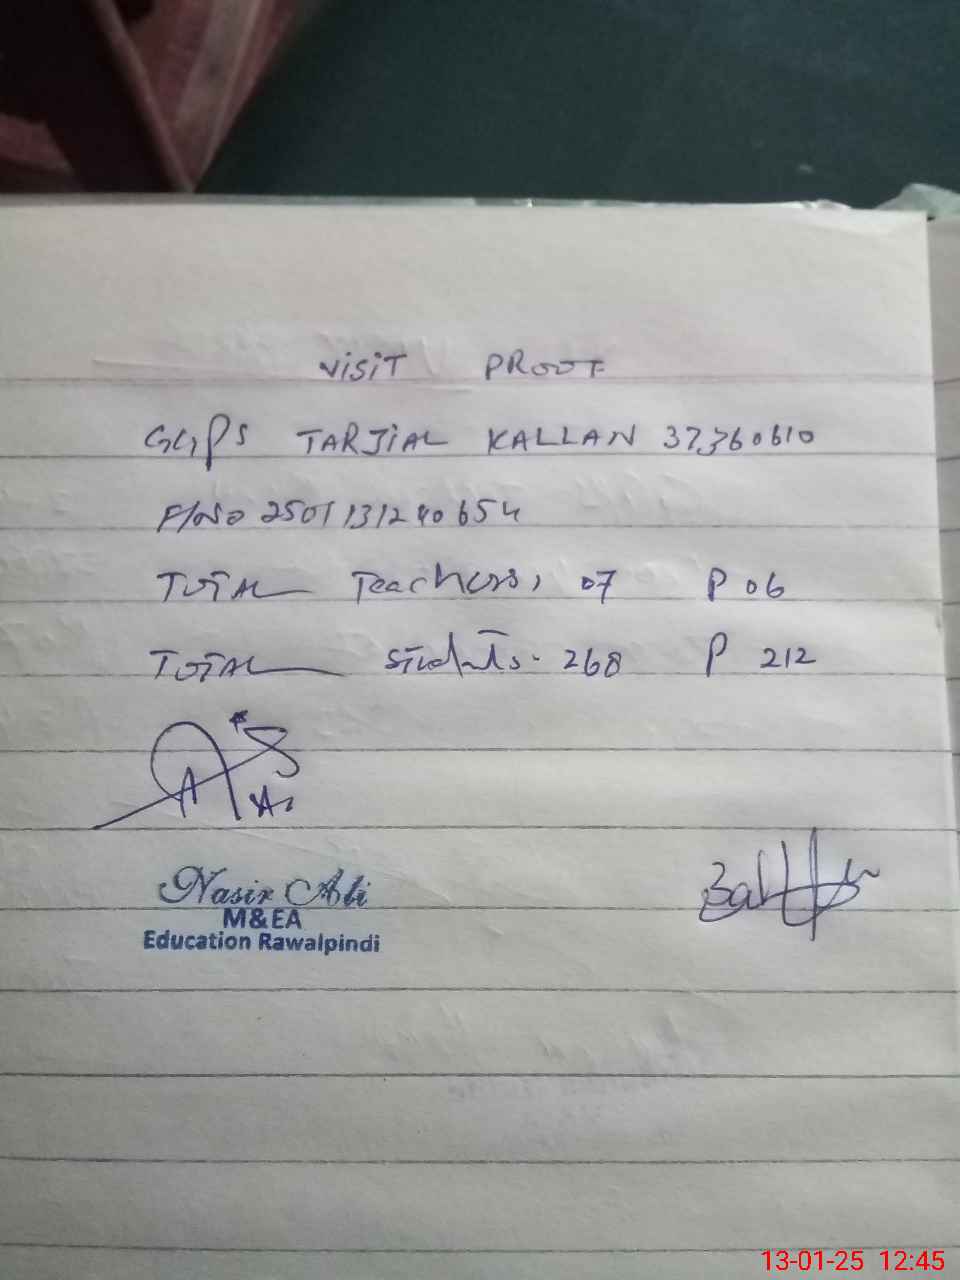 VISIT PROOF
GGPS TARJIAL KALLAN 37360610
F/NO 2501131240654
TOTAL Teachers, 07 P 06
TOTAL Students. 268 P 212
Nasir Ali
M&EA
Education Rawalpindi
13-01-25 12:45